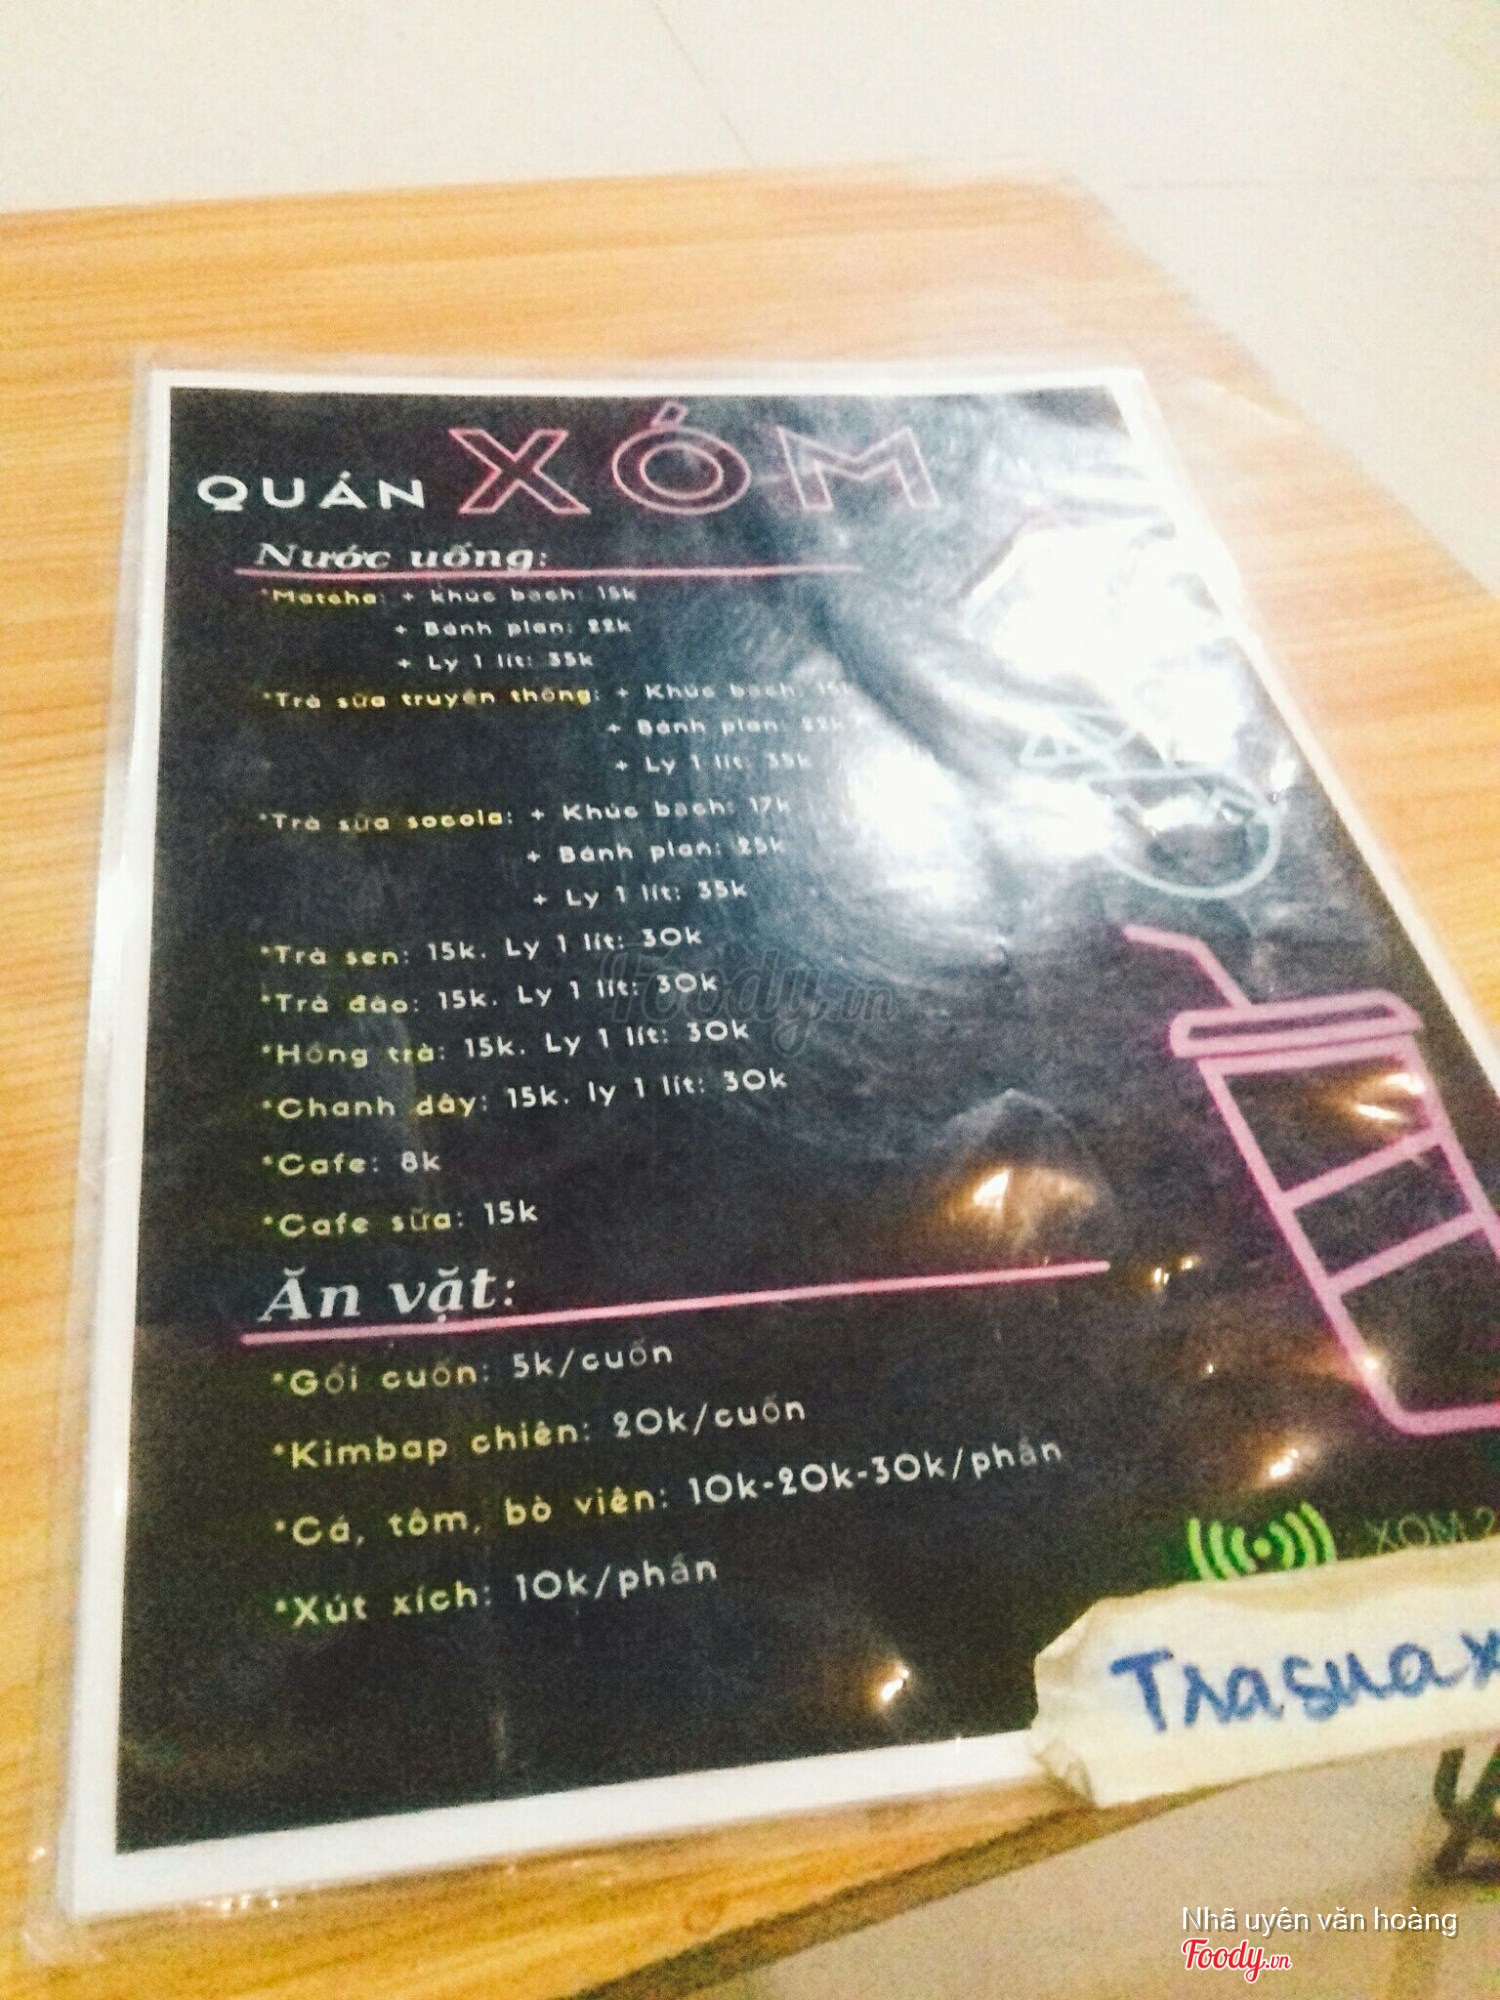 QUÁN XÓM
Nước uống:
*Matcha: + khúc bạch: 15k
+ Bánh plan: 22k
+ Ly 1 lít: 35k
*Trà sữa truyền thống: + Khúc bạch: 15k
+ Bánh plan: 22k
+ Ly 1 lít: 35k
*Trà sữa socola: + Khúc bạch: 17k
+ Bánh plan: 25k
+ Ly 1 lít: 35k
*Trà sen: 15k. Ly 1 lít: 30k
*Trà đào: 15k. Ly 1 lít: 30k
*Hồng trà: 15k. Ly 1 lít: 30k
*Chanh dây: 15k. ly 1 lít: 30k
*Cafe: 8k
*Cafe sữa: 15k
Ăn vặt:
*Gỏi cuốn: 5k/cuốn
*Kimbap chiên: 20k/cuốn
*Cá, tôm, bò viên: 10k-20k-30k/phần
*Xút xích: 10k/phần
XOM 2
Trasuax
Foody.vn
Nhã uyên văn hoàng
Foody.vn